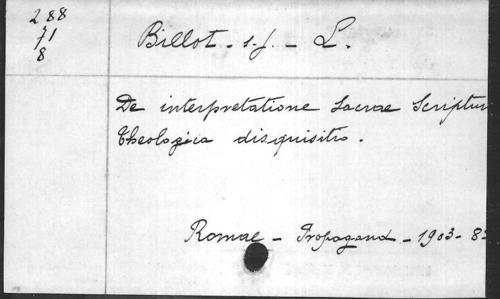 288
71
8
Billot - s.j. - L.
De interpretatione Sacrae Scriptur
theologica disquisitio.
Romae - Propagand - 1903 - 8